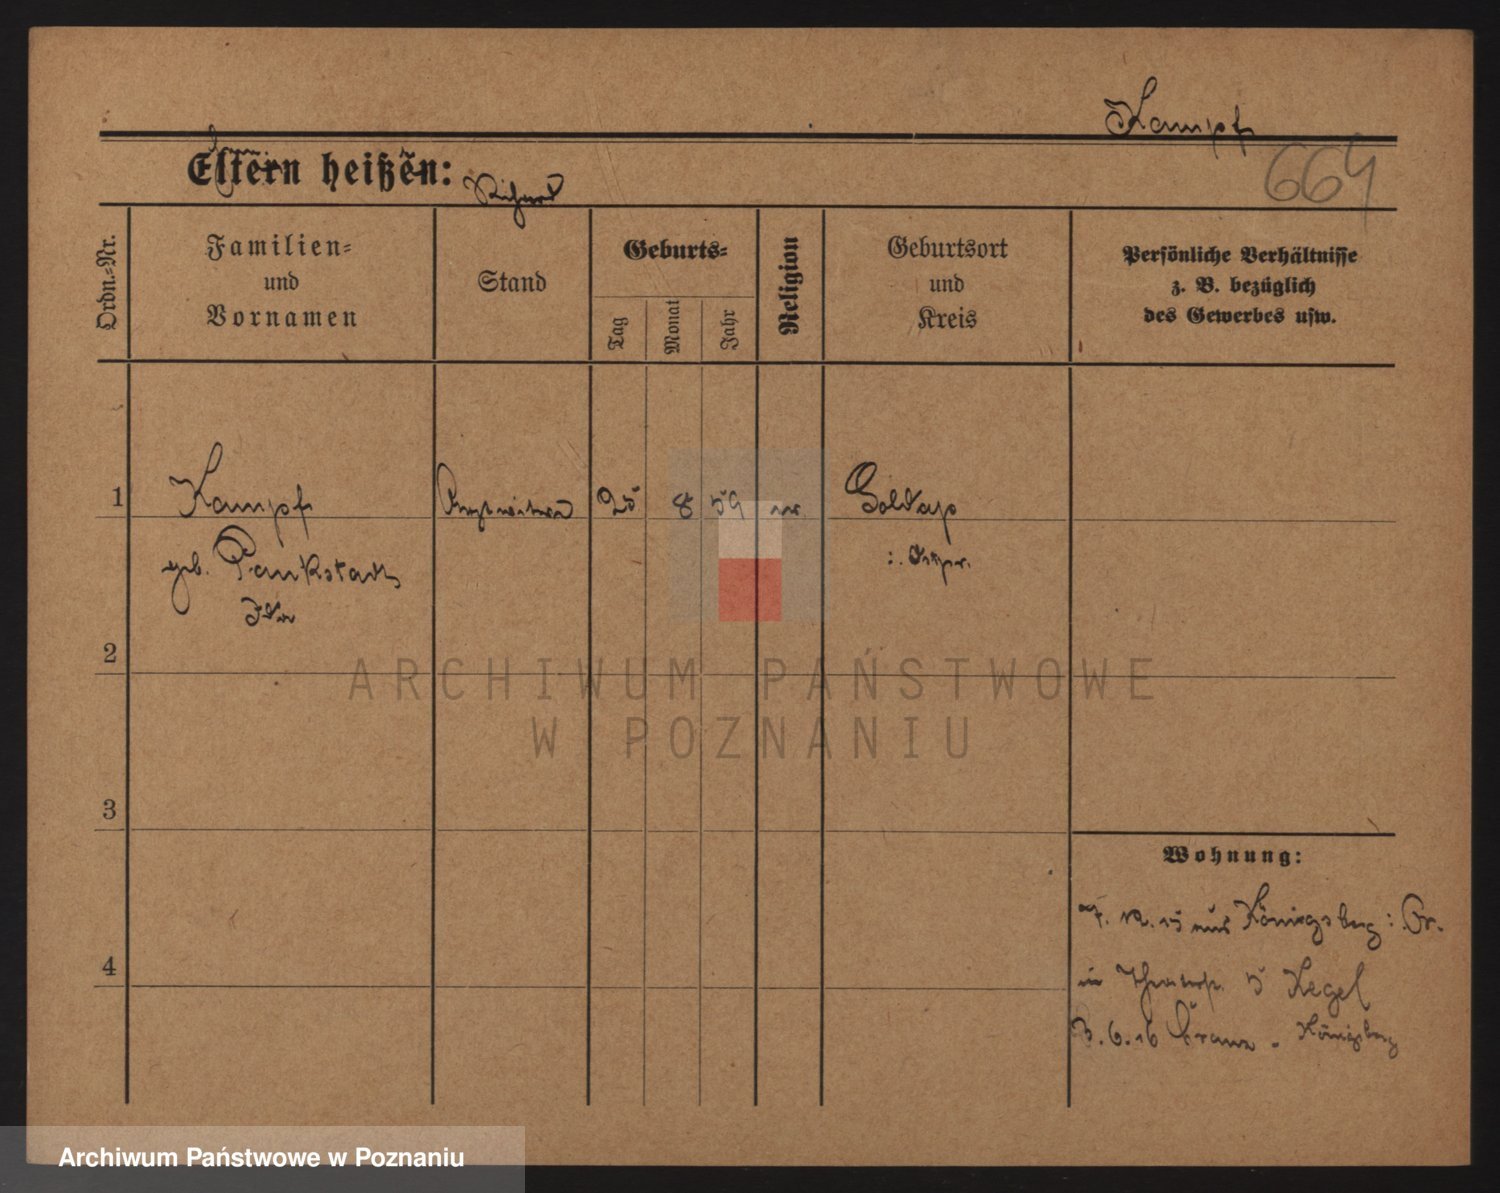 Kampf
Eltern heißen:
664
Ordn.-Nr.
Familien-
und
Vornamen
Stand
Geburts-
Tag
Monat
Jahr
Religion
Geburtsort
und
Kreis
Persönliche Verhältnisse
z. B. bezüglich
des Gewerbes usw.
1 Kampf 25 8 59 Goldap
geb. Pankstadt
Ida
2
3
4
Wohnung:
7. 12. 15 aus Königsberg i. Pr.
in 5 Kegel
3. 6. 16 Cranz - Königsberg
ARCHIWUM PAŃSTWOWE
W POZNANIU
Archiwum Państwowe w Poznaniu